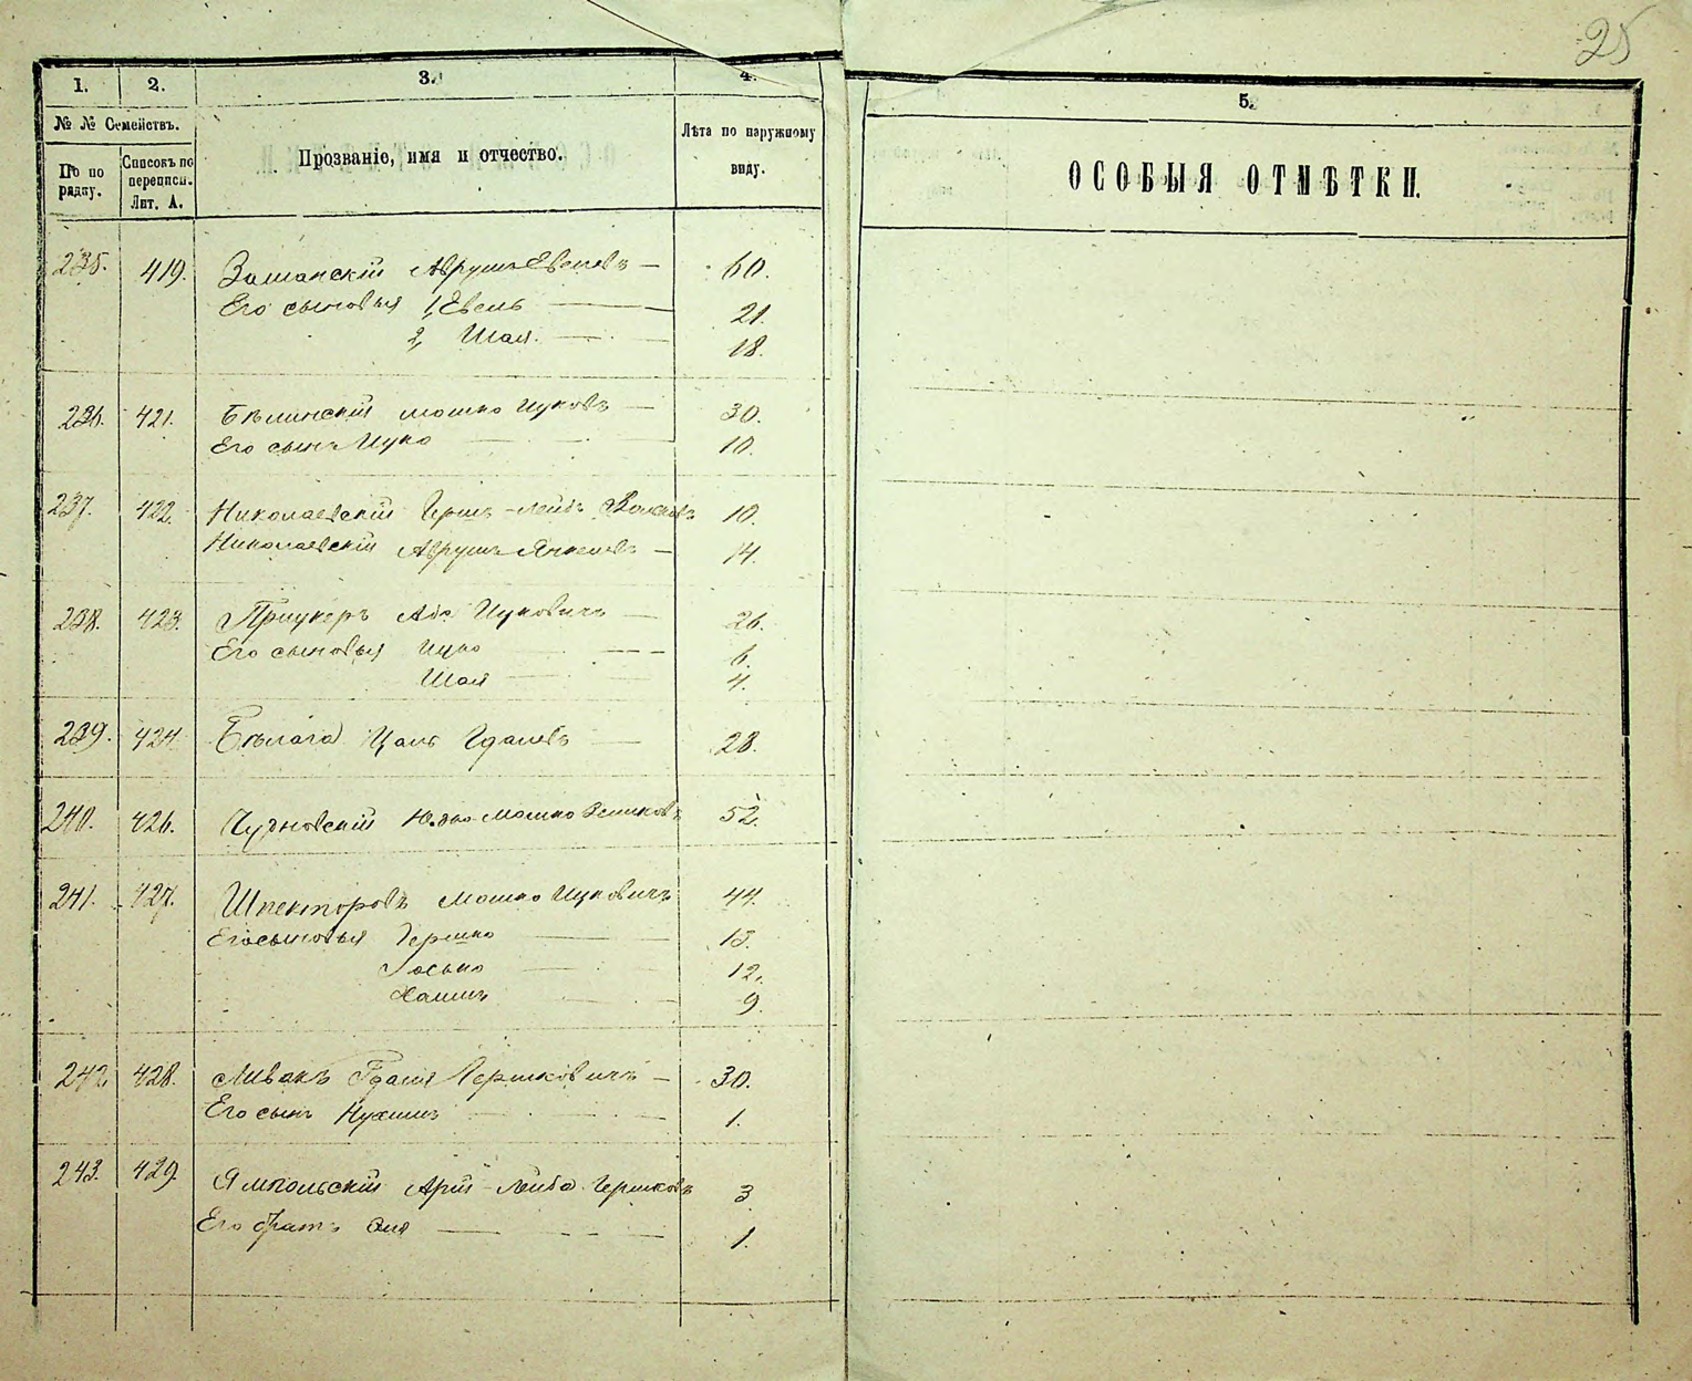 25
1. 2. 3. 4. 5.
№ № Семействъ.
По по рядку.
Списокъ по переписи. Лит. А.
Прозваніе, имя и отчество.
Лѣта по наружному виду.
ОСОБЫЯ ОТМѢТКИ.
235. 419. Заманскій Аврумъ Евелевъ — 60.
Его сыновья 1, Евель — 21.
2, Шая. — 18.
236. 421. Бѣлинскій Мошко Ицковъ — 30.
Его сынъ Ицко — 10.
237. 422. Николаевскій Герш-Лейбъ 10.
Николаевскій Аврумъ Янкелевъ — 14.
238. 423. Прицкеръ Аба Ицковичъ — 26.
Его сыновья Ицко — 6.
Шая — 4.
239. 424. Цаль Гдалевъ — 28.
240. 426. Чудновскій Мошко 52.
241. 427. Шпекторовъ Мошко Ицковичъ 44.
Его сыновья Гершко — 13.
Іосько — 12.
Хаимъ 9.
242. 428. Ливакъ Гдаля Гершковичъ — 30.
Его сынъ Нухимъ — 1.
243. 429. Ямпольскій Арій-Лейба Гершковъ 3
Его братъ Эля — 1.